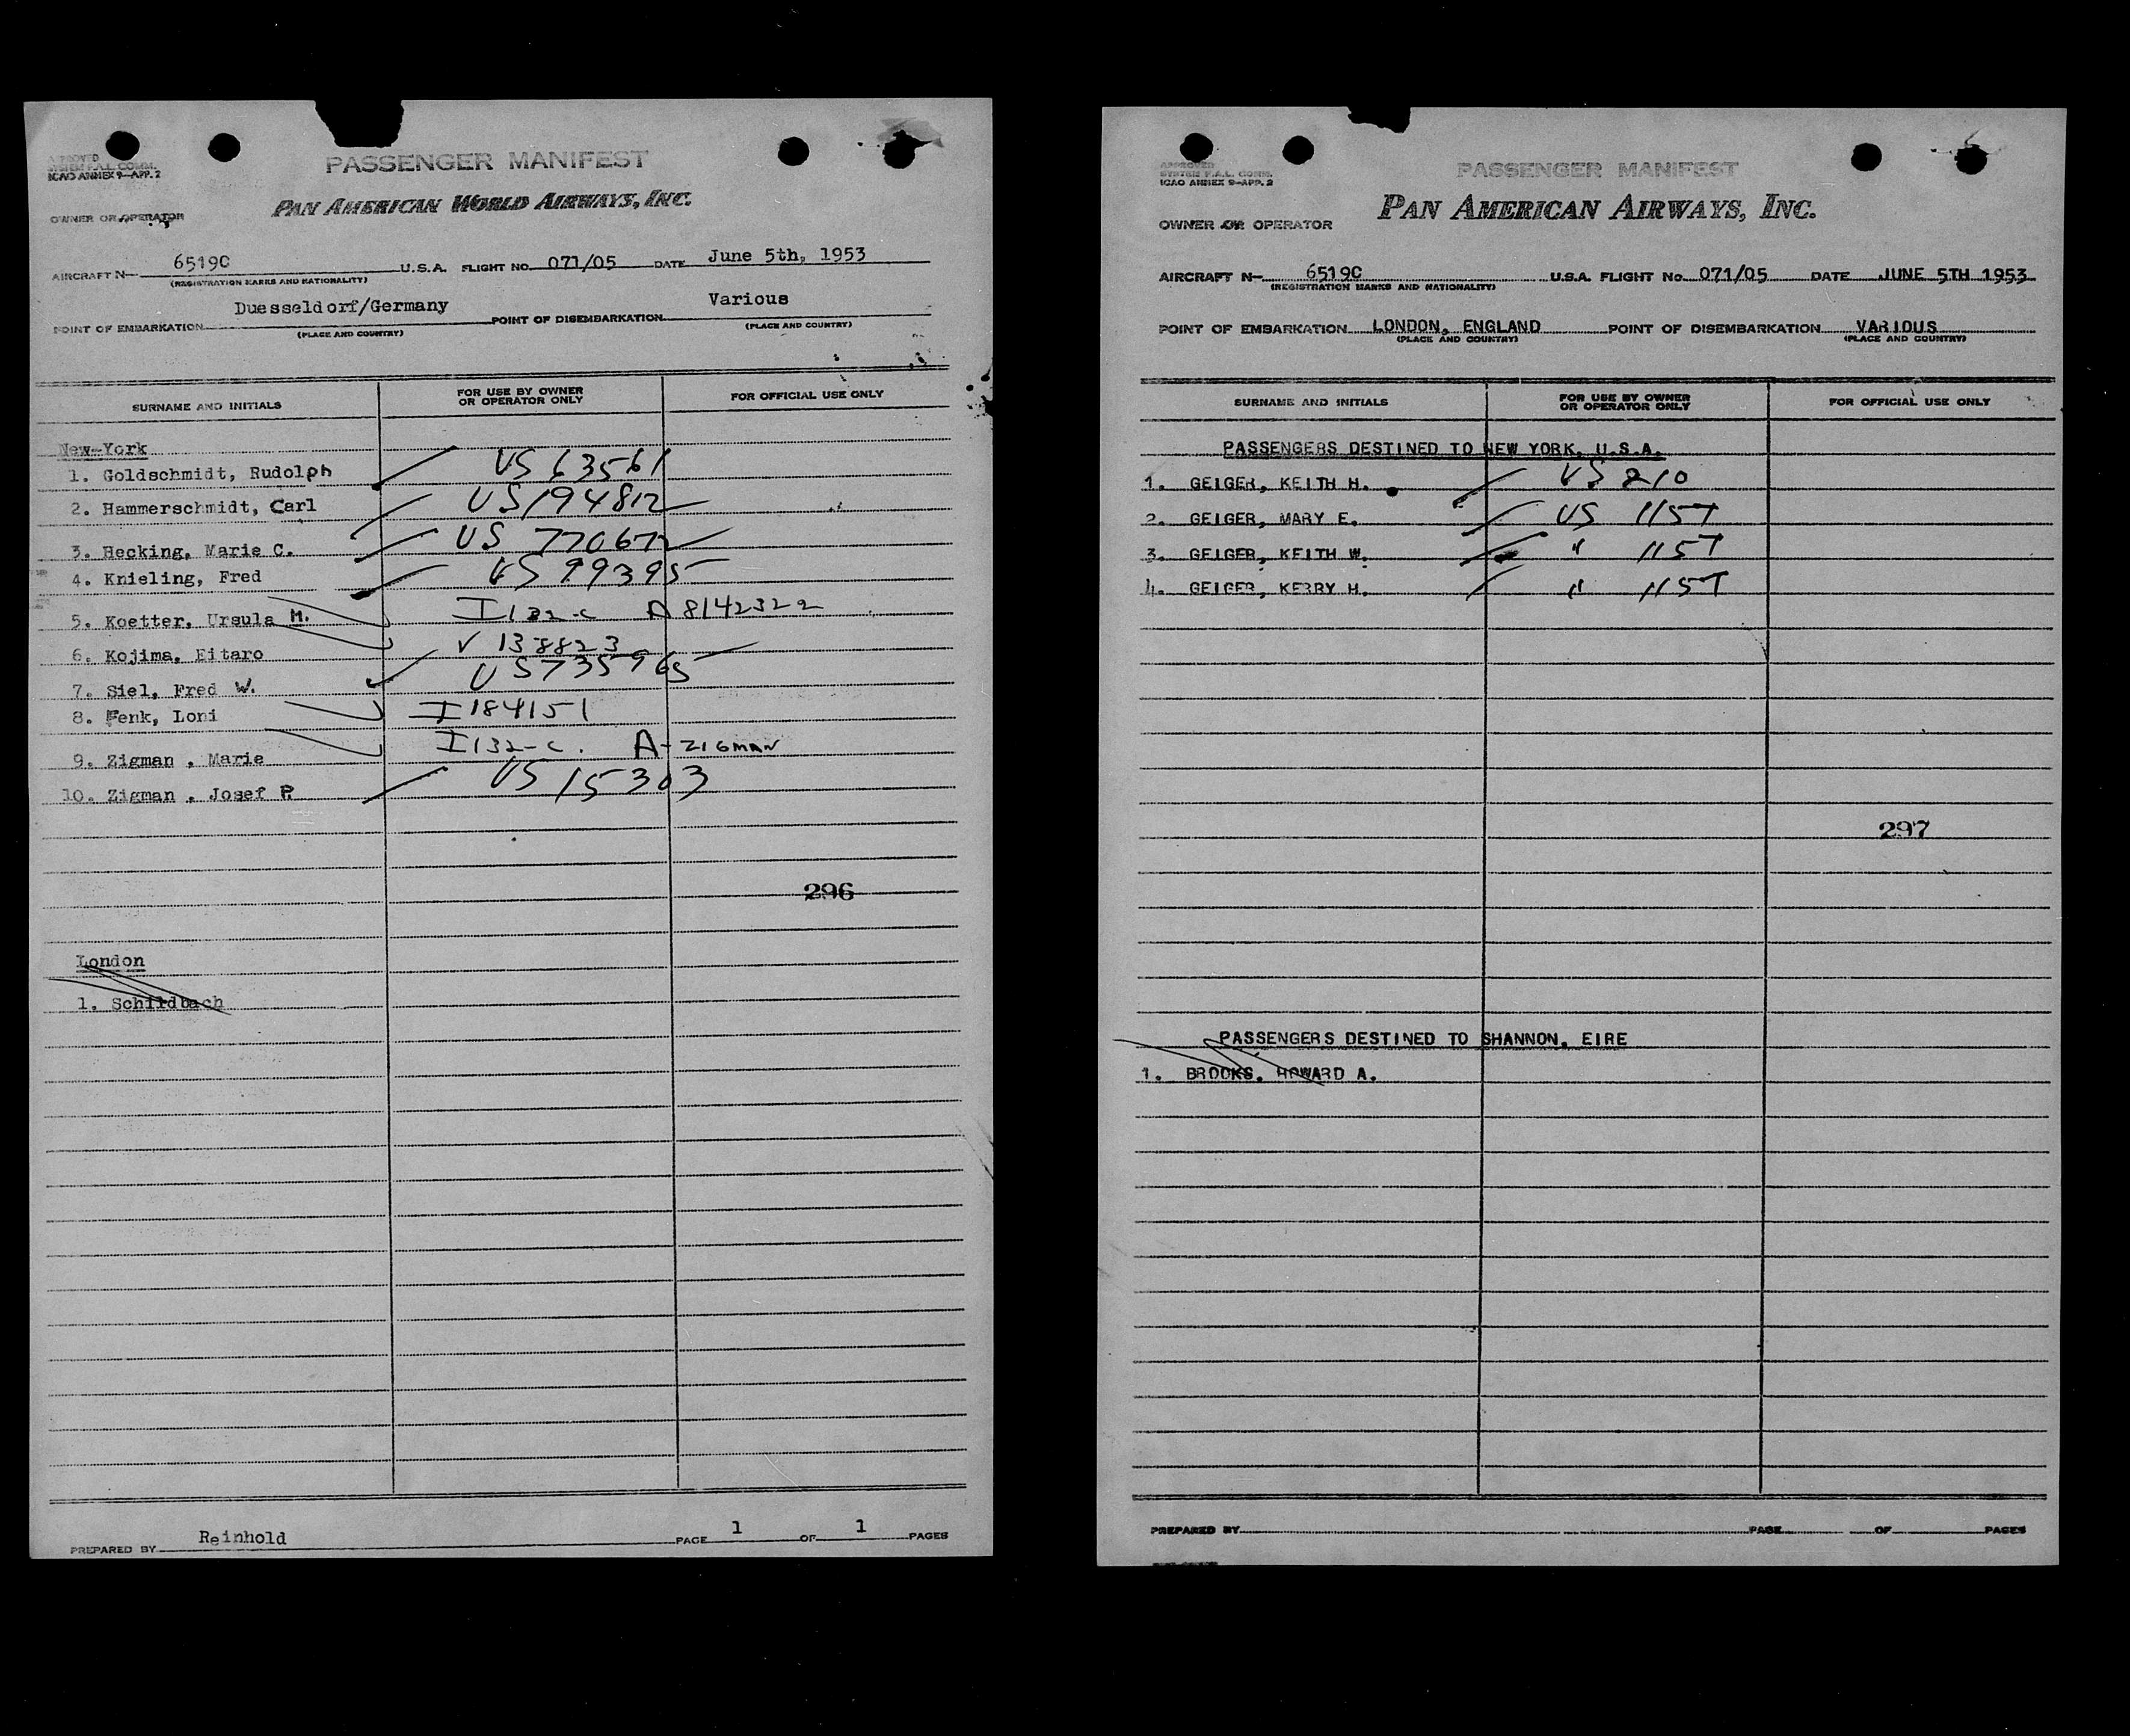 APPROVED
SYSTEM F.A.L. COMM.
ICAO ANNEX 9—APP. 2
PASSENGER MANIFEST
PAN AMERICAN WORLD AIRWAYS, INC.
OWNER OR OPERATOR
AIRCRAFT N— 6519C U.S.A. FLIGHT NO. 071/05 DATE June 5th, 1953
(REGISTRATION MARKS AND NATIONALITY)
POINT OF EMBARKATION Duesseldorf/Germany POINT OF DISEMBARKATION Various
(PLACE AND COUNTRY) (PLACE AND COUNTRY)
SURNAME AND INITIALS FOR USE BY OWNER OR OPERATOR ONLY FOR OFFICIAL USE ONLY
New-York
1. Goldschmidt, Rudolph US 63561
2. Hammerschmidt, Carl US 194812
3. Hecking, Marie C. US 770672
4. Knieling, Fred US 99395
5. Koetter, Ursula M. I 132-c A 8142322
6. Kojima, Eitaro V 138823
7. Siel, Fred W. US 735965
8. Fenk, Loni I 184151
9. Zigman , Marie I 132-c. A-ZIGMAN
10. Zigman , Josef P. US 15303
296
London
1. Schildbach
PREPARED BY Reinhold PAGE 1 OF 1 PAGES
APPROVED
SYSTEM F.A.L. COMM.
ICAO ANNEX 9—APP. 2
PASSENGER MANIFEST
PAN AMERICAN AIRWAYS, INC.
OWNER OR OPERATOR
AIRCRAFT N— 6519C U.S.A. FLIGHT NO. 071/05 DATE JUNE 5TH 1953
(REGISTRATION MARKS AND NATIONALITY)
POINT OF EMBARKATION LONDON, ENGLAND POINT OF DISEMBARKATION VARIOUS
(PLACE AND COUNTRY) (PLACE AND COUNTRY)
SURNAME AND INITIALS FOR USE BY OWNER OR OPERATOR ONLY FOR OFFICIAL USE ONLY
PASSENGERS DESTINED TO NEW YORK, U.S.A.
1. GEIGER, KEITH H. US 210
2. GEIGER, MARY E. US 1157
3. GEIGER, KEITH W. " 1157
4. GEIGER, KERRY H. " 1157
297
PASSENGERS DESTINED TO SHANNON, EIRE
1. BROOKS, HOWARD A.
PREPARED BY PAGE OF PAGES